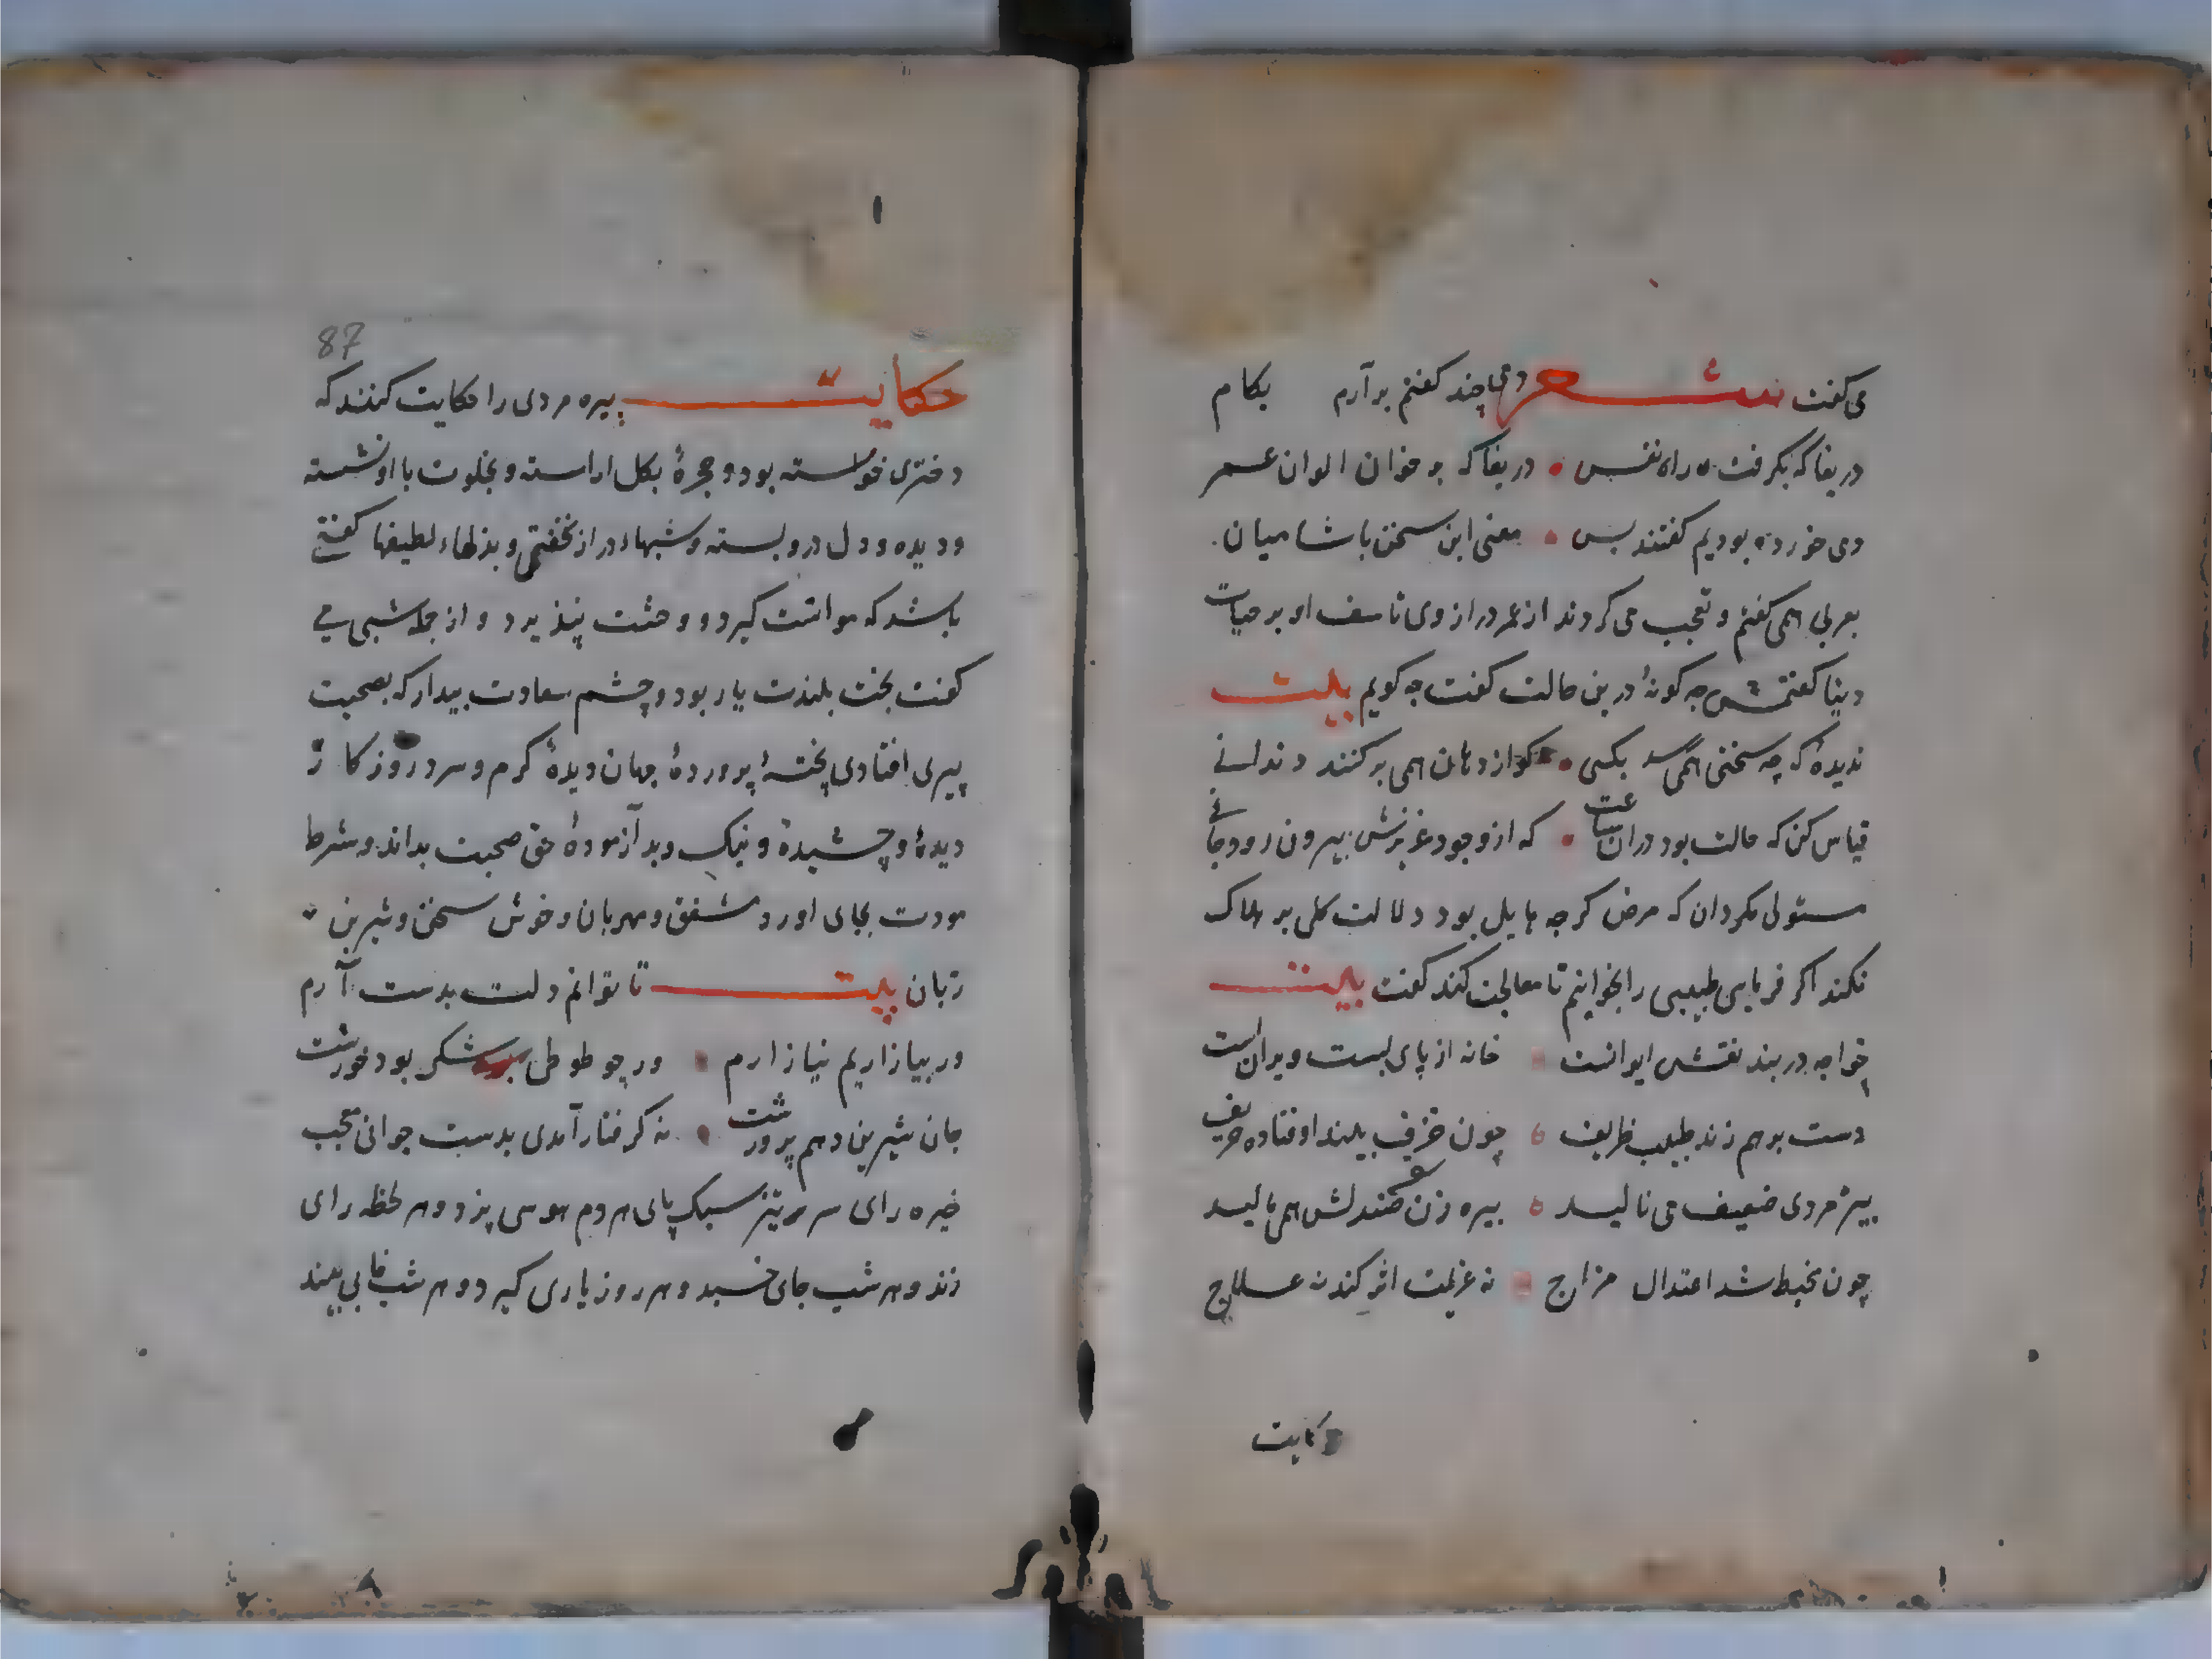 می گفت شعر دمی چند کفتم بر آرم بکام
دریغا که بگرفت راه نفس دریغا که بر خوان الوان عمر
دمی خورده بودیم کفتند بس معنی این سخن با شامیان
بعربی همی کفتم و تعجب می کردند از عمر دراز وی تاسف او بر حیات
دینا کفتمش چه کونه درین حالت کفت چه کویم بیت
ندیدهٔ که چه سختی همی رسد بکسی که از دهان همی بر کنند دندانی
قیاس کن که حالت بود دران ساعت که از وجود عزیزش بیرون رود جانی
مستولی مکردان که مرض کرچه هایل بود دلالت کلی بر هلاک
نکند اکر فرمایی طبیبی را بخوانیم تا معالجت کند کفت بیت
خواجه در بند نقش ایوانست خانه از پای بست ویران است
دست بر هم زند طبیب ظریف چون خرف بیند اوفتاده حریف
پیر مردی ضعیف می نالید پیره زن صندلش همی مالید
چون مخبط شد اعتدال مزاج نه عزیمت اثر کند نه علاج
حکایت
87
حکایت پیره مردی را حکایت کنند که
دختری خواسته بود و حجرهٔ بکل اراسته و بخلوت با او نشسته
و دیده و دل درو بسته و شبهاء دراز نخفتی و بذلهاء لطیفها کفتی
باشد که موانست کیرد و وحشت نپذیرد و از جمله شبی می
کفت بخت بلندت یار بود و چشم سعادت بیدار که بصحبت
پیری افتادی پختهٔ پروردهٔ جهان دیدهٔ کرم و سرد روزکار
دیدهٔ و چشیدهٔ و نیک و بد آزمودهٔ حق صحبت بداند و شرط
مودت بجای اورد مشفق و مهربان و خوش سخن و شیرین
زبان بیت تا توانم دلت بدست آرم
ور بیازاریم نیازارم ور چو طوطی شکر بود خورشت
جان شیرین دهم پرورشت نه کرفتار آمدی بدست جوانی معجب
خیره رای سر تیز سبک پای هر دم هوسی پزد و هر لحظه رای
زند و هر شب جای خسبد و هر روز یاری کیرد و هر شب